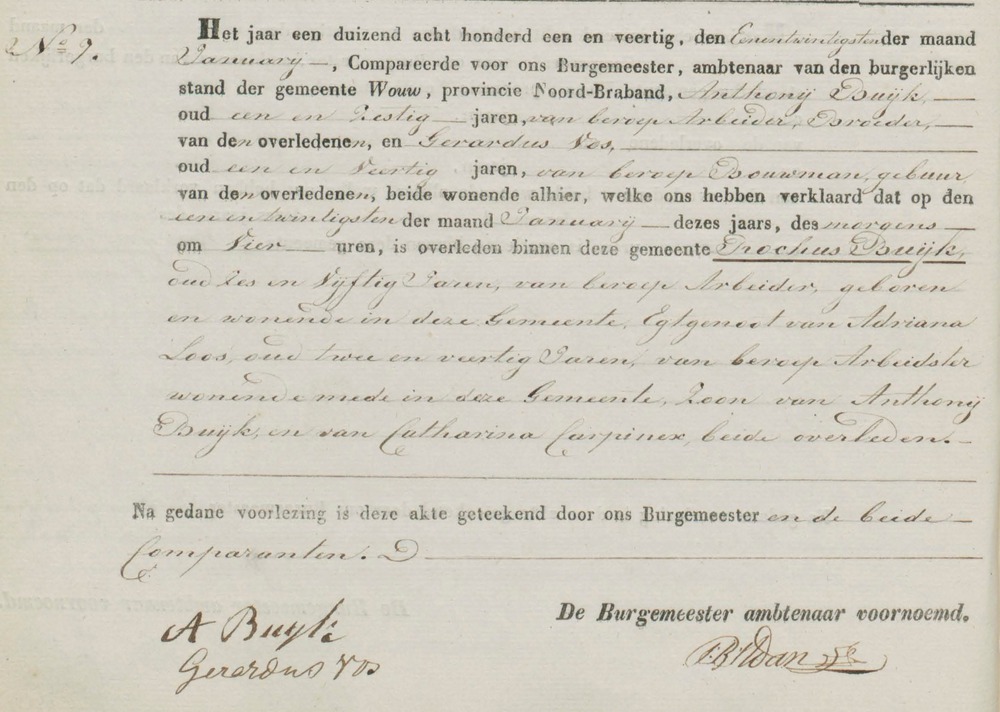 No 9.
Het jaar een duizend acht honderd een en veertig, den Eenentwintigsten der maand
January, Compareerde voor ons Burgemeester, ambtenaar van den burgerlijken
stand der gemeente Wouw, provincie Noord-Braband, Anthonij Buijk,
oud een en Zestig jaren, van beroep Arbeider, Broeder,
van den overledenen, en Gerardus Vos,
oud een en Veertig jaren, van beroep Bouwman, gebuur
van den overledenen, beide wonende alhier, welke ons hebben verklaard dat op den
een en twintigsten der maand January dezes jaars, des morgens
om Vier uren, is overleden binnen deze gemeente Rochus Buijk,
oud Zes en Vijftig Jaren, van beroep Arbeider, geboren
en wonende in deze Gemeente, Egtgenoot van Adriana
Loos, oud twee en veertig Jaren, van beroep Arbeidster
wonende mede in deze Gemeente, Zoon van Anthonij
Buijk, en van Catharina Carpinex, beide overleden.
Na gedane voorlezing is deze akte geteekend door ons Burgemeester en de beide
Comparanten.
De Burgemeester ambtenaar voornoemd.
A Buijk
Gerardus Vos